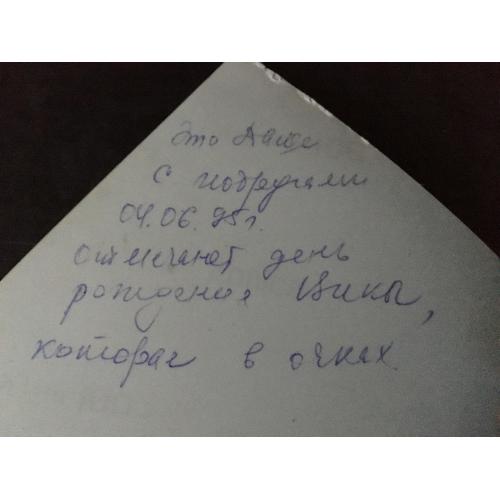 Это Даша
с подругами
04.06.95г.
отмечает день
рождения Вики,
которая в очках.